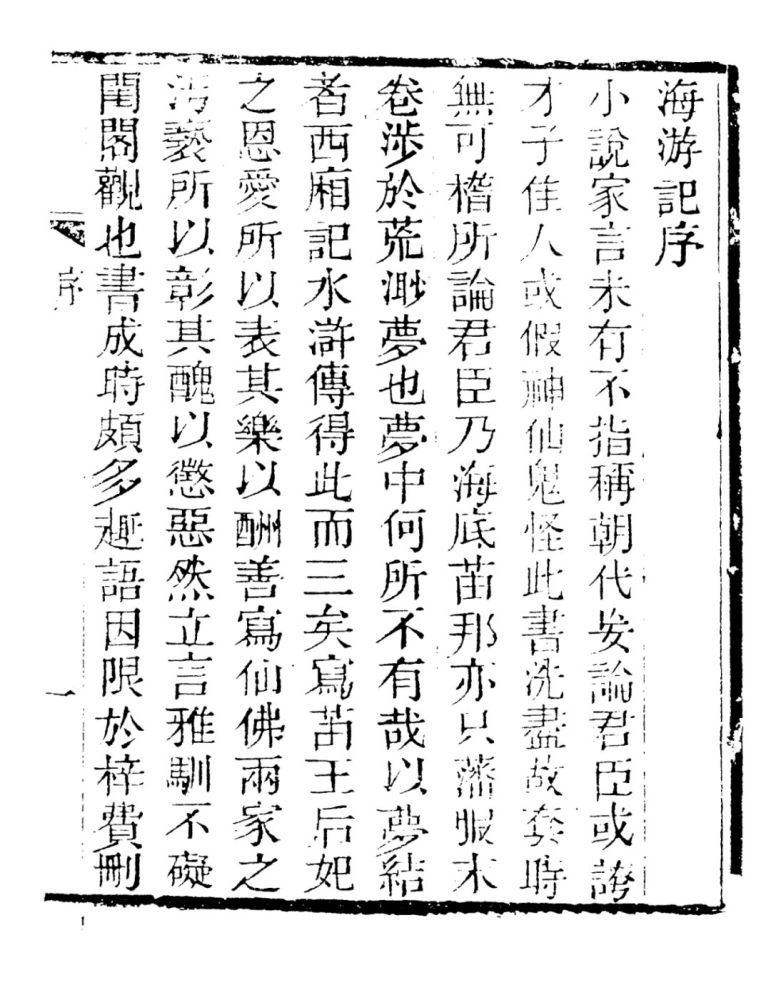 海游記序
小說家言未有不指稱朝代妄論君臣或誇
才子佳人或假神仙鬼怪此書洗盡故套時
無可稽所論君臣乃海底苗邦亦只藩服末
卷涉於荒渺夢也夢中何所不有哉以夢結
者西廂記水滸傳得此而三矣寫苗王后妃
之恩愛所以表其樂以酬善寫仙佛兩家之
污褻所以彰其醜以懲惡然立言雅馴不礙
閨閣觀也書成時頗多趣語因限於梓費刪
序
一